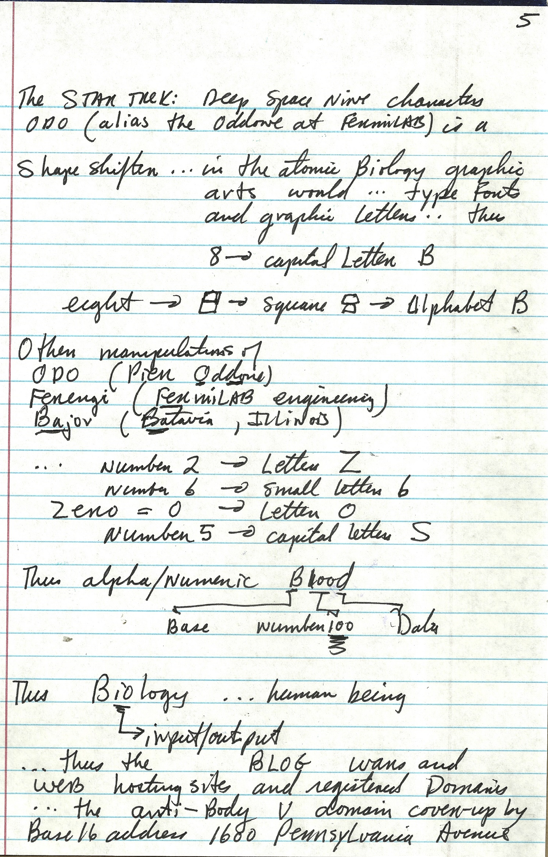 5
The STAR TREK: Deep Space Nine characters
ODO (alias the Oddone at FermiLAB) is a
Shape shifter ... in the atomic Biology graphic
arts would ... type Fonts
and graphic letters .. thus
8 → capital Letter B
eight → 日 → square 8 → Alphabet B
Other manipulations of
ODO (Pier Oddone)
Ferengi (FermiLAB engineering)
Bajor (Batavia, ILLINOIS)
... Number 2 → Letter Z
Number 6 → small letter b
Zero = 0 → Letter O
Number 5 → capital letter S
Thus alpha/Numeric Blood
Base Number 100 Data
Thus Biology ... human being
→ input/output
... thus the BLOG wars and
WEB hosting sites and registered Domains
... the anti-Body V domain cover-up by
Base 16 address 1680 Pennsylvania Avenue